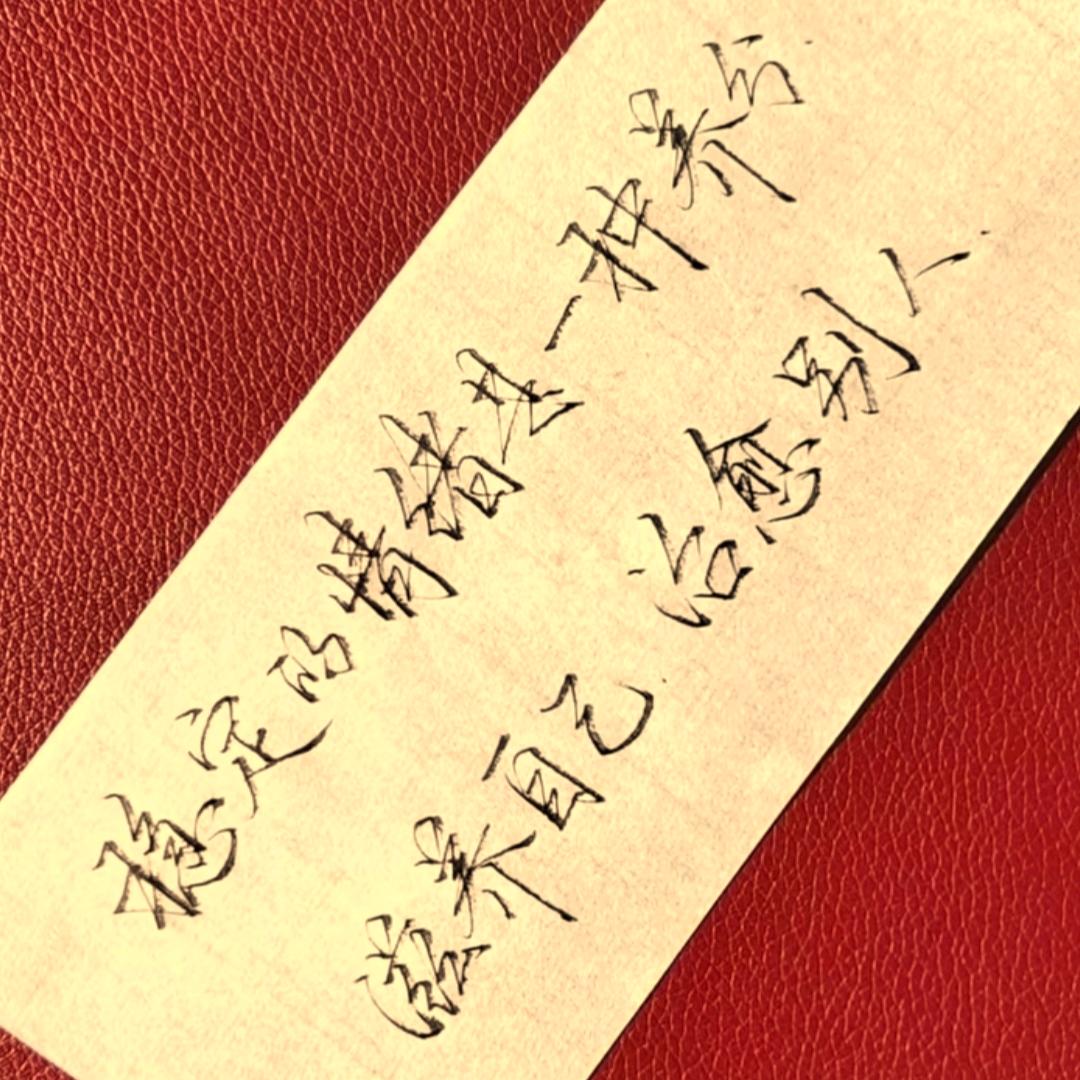 稳定的情绪是一种养分
滋养自己 治愈别人